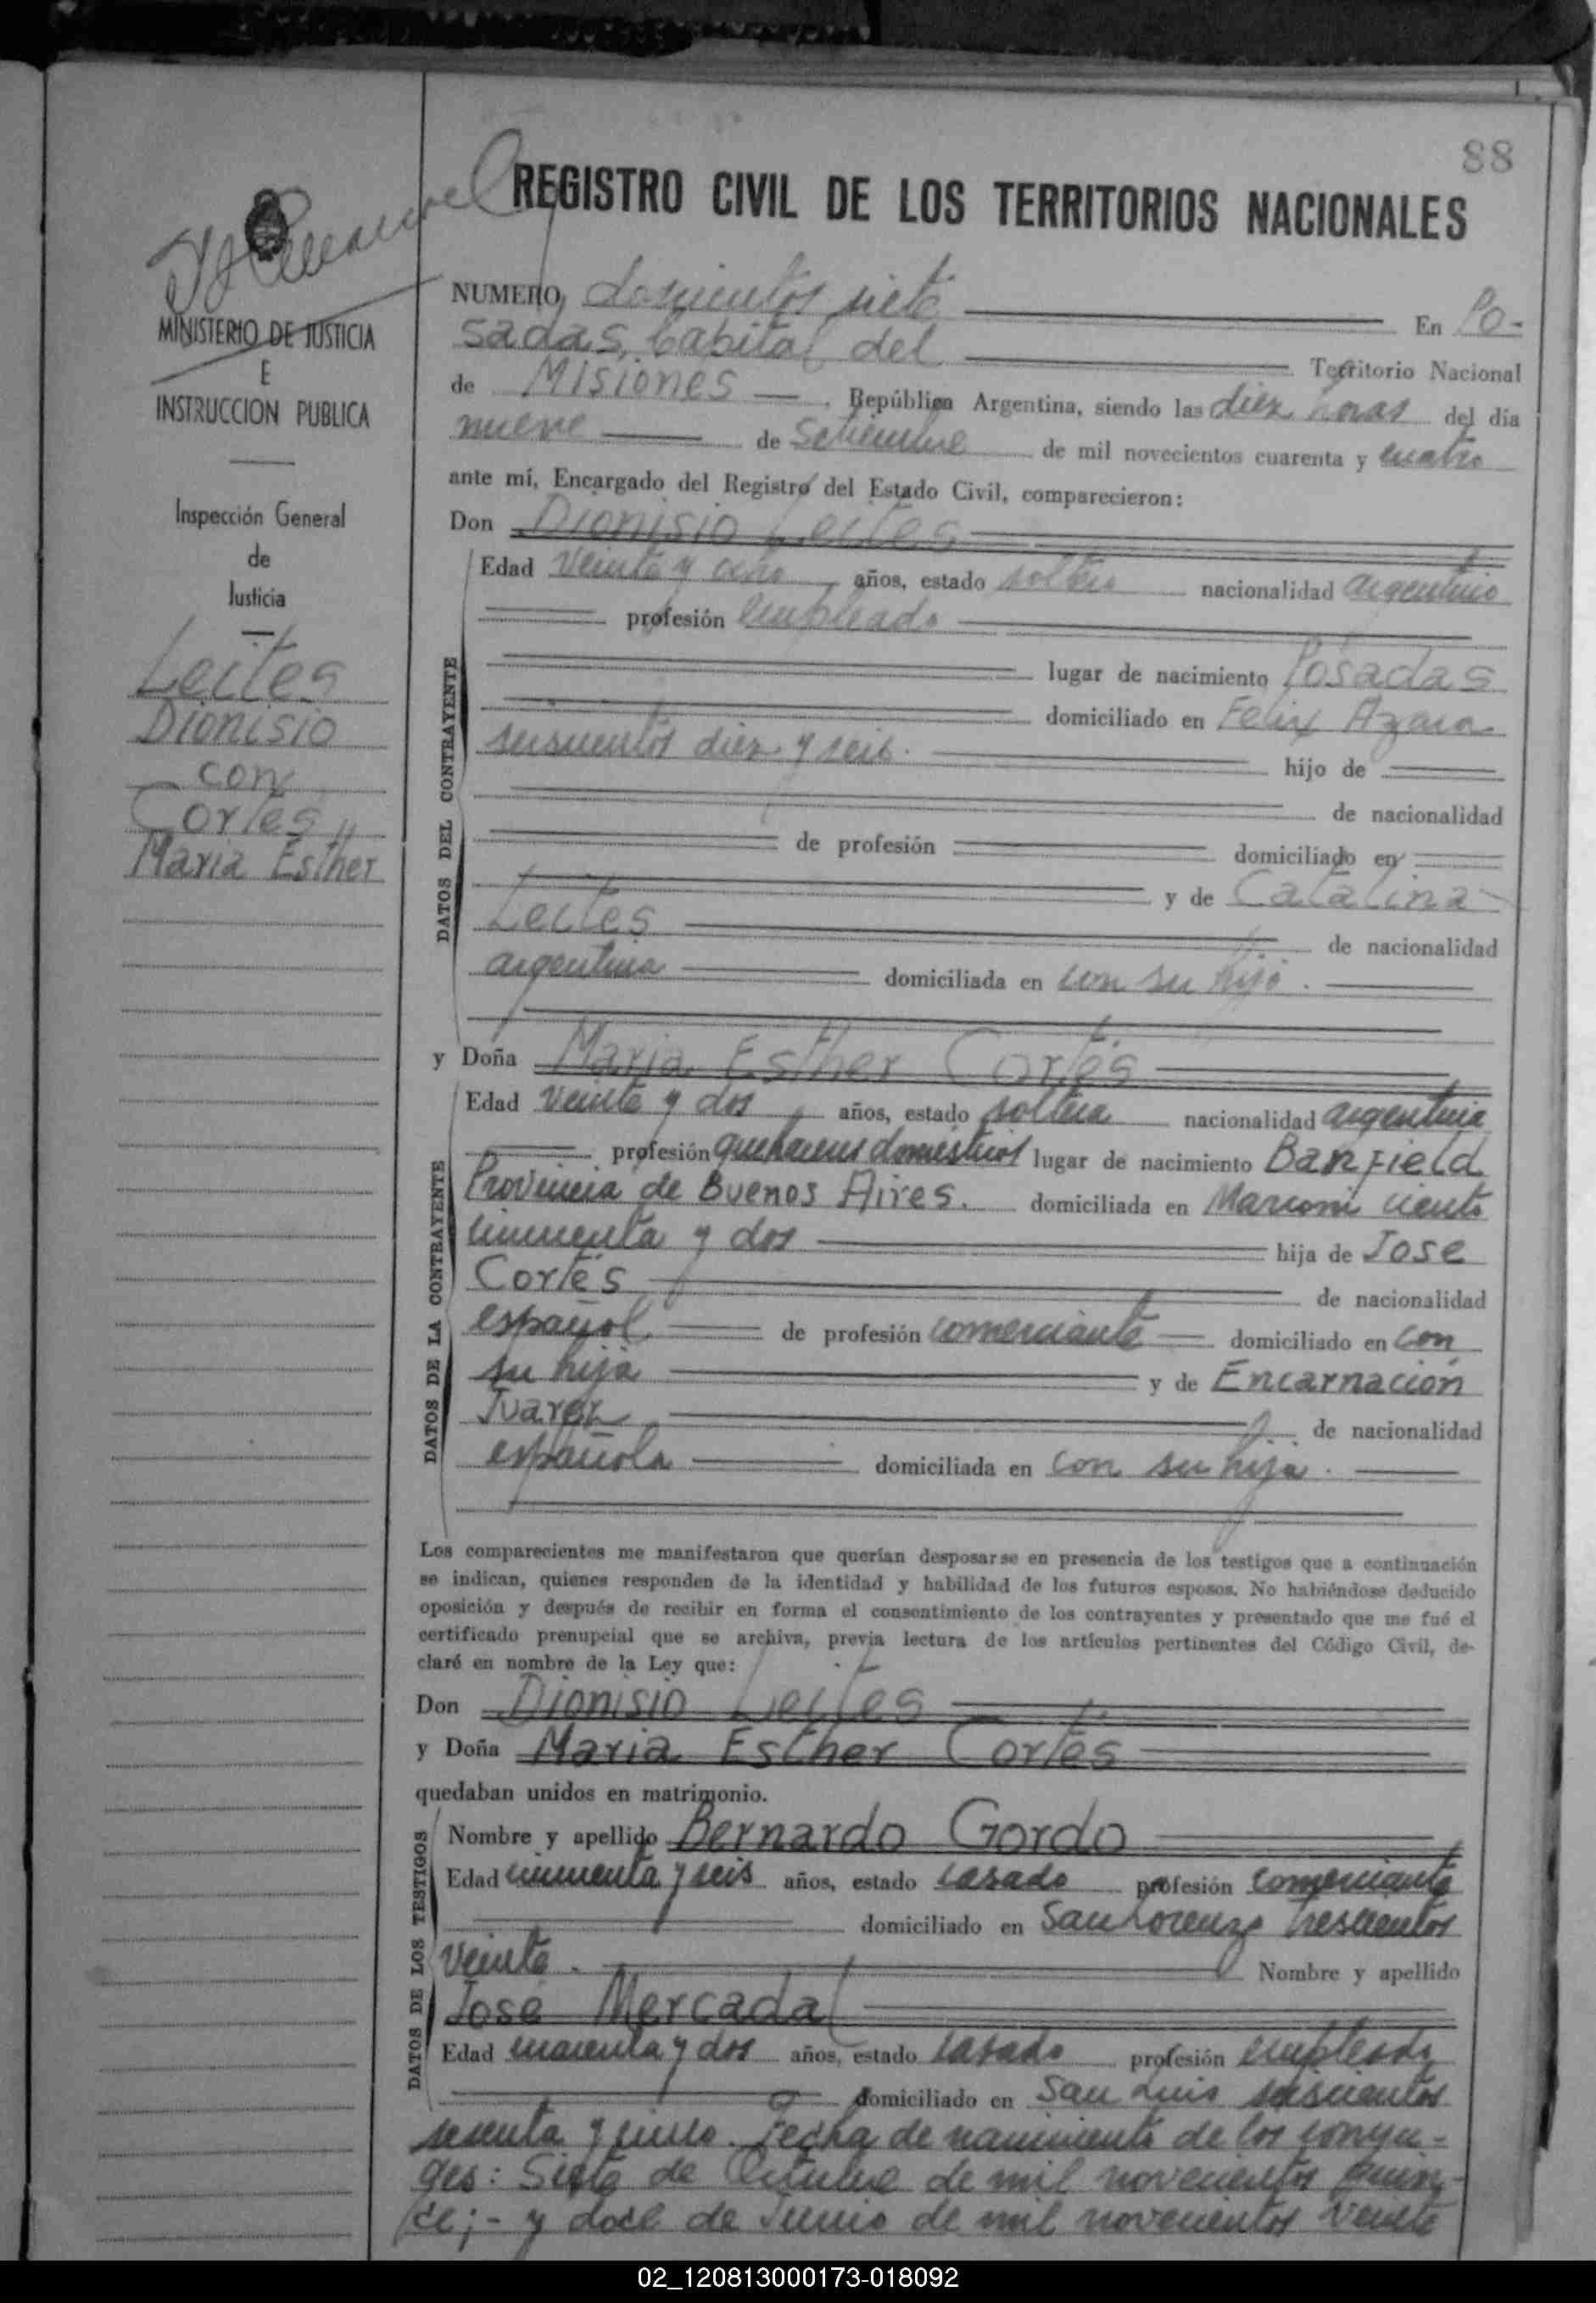 88
REGISTRO CIVIL DE LOS TERRITORIOS NACIONALES
MINISTERIO DE JUSTICIA
E
INSTRUCCION PUBLICA
Inspección General
de
Justicia
Leites
Dionisio
con
Cortés
Maria Esther
NUMERO doscientos siete En Po-
sadas, Capital del Territorio Nacional
de Misiones República Argentina, siendo las diez horas del día
nueve de Setiembre de mil novecientos cuarenta y cuatro
ante mí, Encargado del Registro del Estado Civil, comparecieron:
Don Dionisio Leites
Edad veinte y ocho años, estado soltero nacionalidad argentino
profesión empleado
lugar de nacimiento Posadas
domiciliado en Felix Azara
seiscientos diez y seis. hijo de
de nacionalidad
de profesión domiciliado en
y de Catalina
Leites de nacionalidad
argentina domiciliada en con su hijo.
y Doña Maria Esther Cortés
Edad veinte y dos años, estado soltera nacionalidad argentina
profesión quehaceres domesticos lugar de nacimiento Banfield
Provincia de Buenos Aires. domiciliada en Marconi ciento
cincuenta y dos hija de Jose
Cortés de nacionalidad
español de profesión comerciante domiciliado en con
su hija y de Encarnación
Juarez de nacionalidad
española domiciliada en con su hija.
Los comparecientes me manifestaron que querían desposarse en presencia de los testigos que a continuación
se indican, quienes responden de la identidad y habilidad de los futuros esposos. No habiéndose deducido
oposición y después de recibir en forma el consentimiento de los contrayentes y presentado que me fué el
certificado prenupcial que se archiva, previa lectura de los artículos pertinentes del Código Civil, de-
claré en nombre de la Ley que:
Don Dionisio Leites
y Doña Maria Esther Cortés
quedaban unidos en matrimonio.
Nombre y apellido Bernardo Gordo
Edad cincuenta y seis años, estado casado profesión comerciante
domiciliado en San Lorenzo trescientos
veinte. Nombre y apellido
José Mercadal
Edad cuarenta y dos años, estado casado profesión empleado
domiciliado en San Luis seiscientos
sesenta y cinco. Fecha de nacimiento de los conyu-
ges: Siete de Octubre de mil novecientos quin-
ce;- y doce de Junio de mil novecientos veinte
DATOS DEL CONTRAYENTE
DATOS DE LA CONTRAYENTE
DATOS DE LOS TESTIGOS
02_120813000173-018092